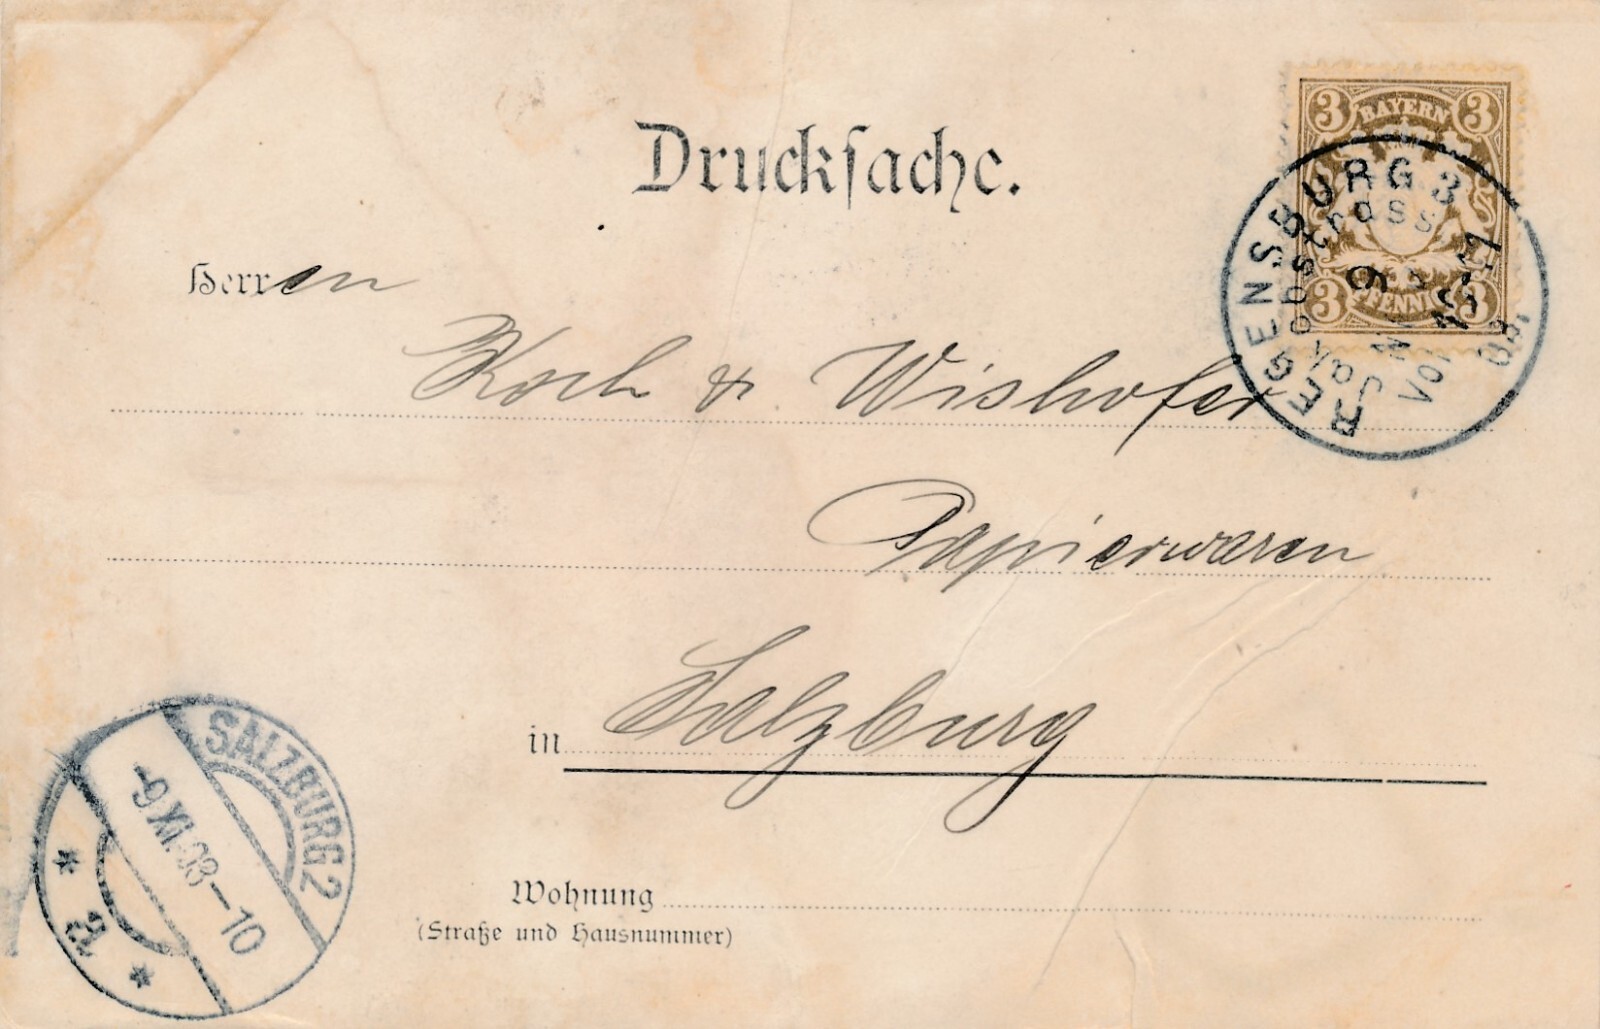 Drucksache.
3 BAYERN 3
3 PFENNIG 3
REGENSBURG 3
Jakobstrass
Herren
Koch & Wishofer
Papierwaren
in Salzburg
SALZBURG 2
-9.XI.03-10
* a *
Wohnung
(Straße und Hausnummer)